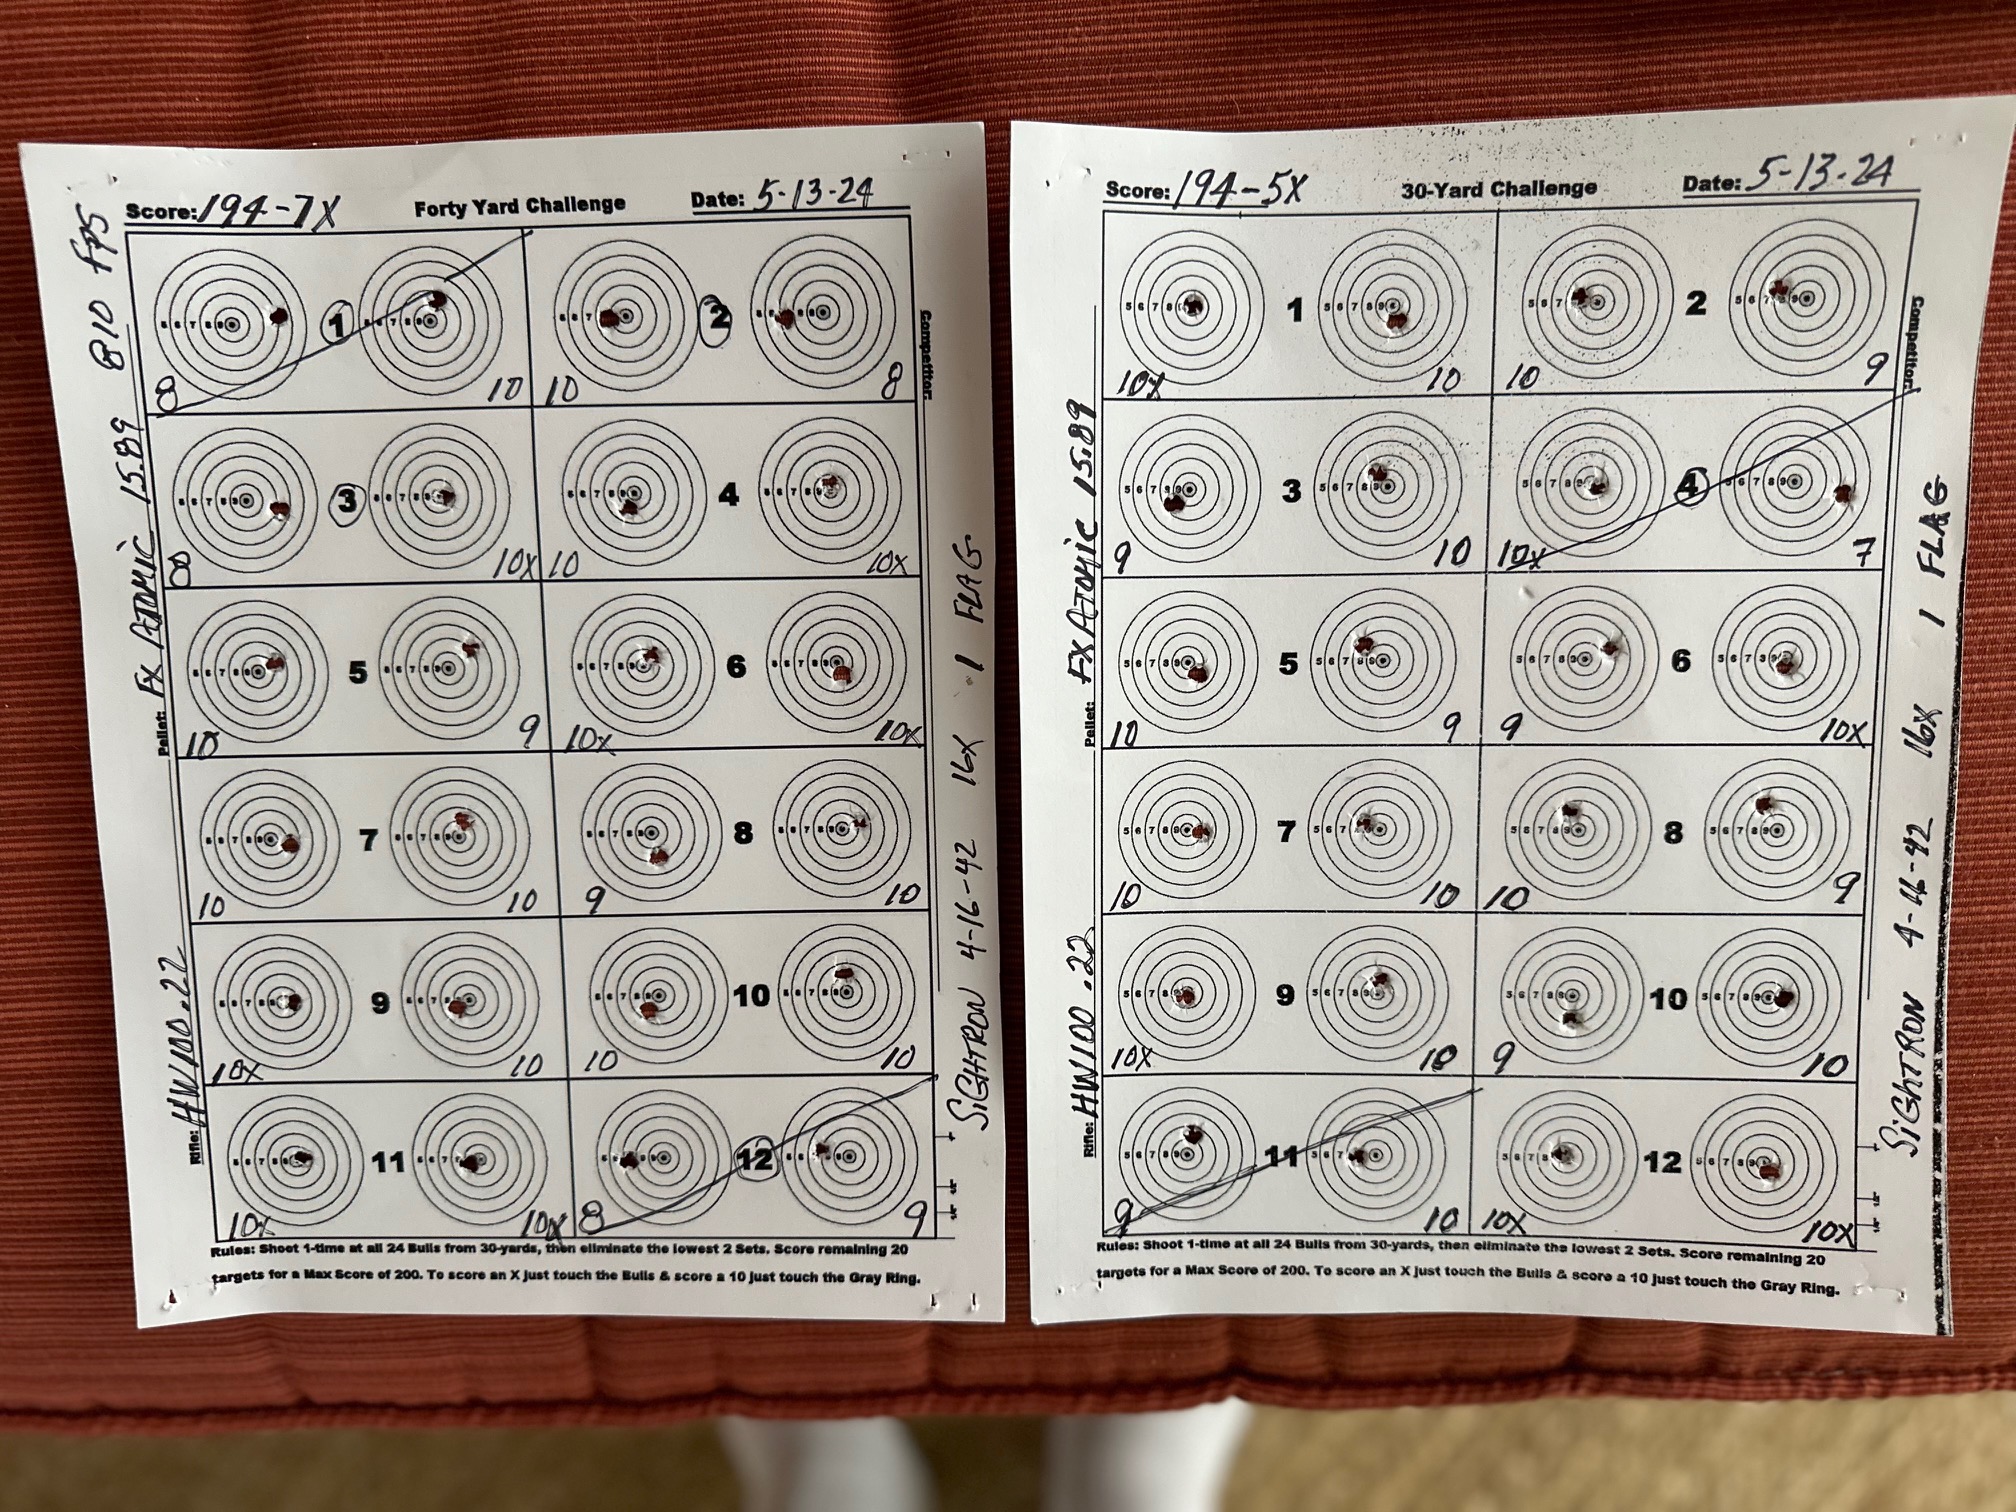 Score: 194-7X Forty Yard Challenge Date: 5-13-24
1
8 10
2
10 8
3
8 10X
4
10 10X
5
10 9
6
10X 10X
7
10 10
8
9 10
9
10X 10
10
10 10
11
10X 10X
12
8 9
Rules: Shoot 1-time at all 24 Bulls from 30-yards, then eliminate the lowest 2 Sets. Score remaining 20
targets for a Max Score of 200. To score an X just touch the Bulls & score a 10 just touch the Gray Ring.
Rifle: HW100 .22 Pellet: FX ATOMIC 15.89 810 FPS
Competitor:
SIGHTRON 4-16-42 16X 1 FLAG
Score: 194-5X 30-Yard Challenge Date: 5-13-24
1
10X 10
2
10 9
3
9 10
4
10X 7
5
10 9
6
9 10X
7
10 10
8
10 9
9
10X 10
10
9 10
11
9 10
12
10X 10X
Rules: Shoot 1-time at all 24 Bulls from 30-yards, then eliminate the lowest 2 Sets. Score remaining 20
targets for a Max Score of 200. To score an X just touch the Bulls & score a 10 just touch the Gray Ring.
Rifle: HW100 .22 Pellet: FX ATOMIC 15.89
Competitor:
SIGHTRON 4-16-42 16X 1 FLAG